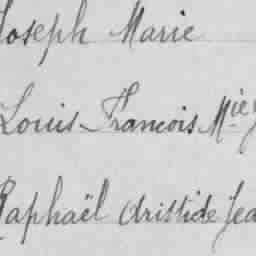 Joseph Marie
Louis François Mie
Raphaël Aristide Jea